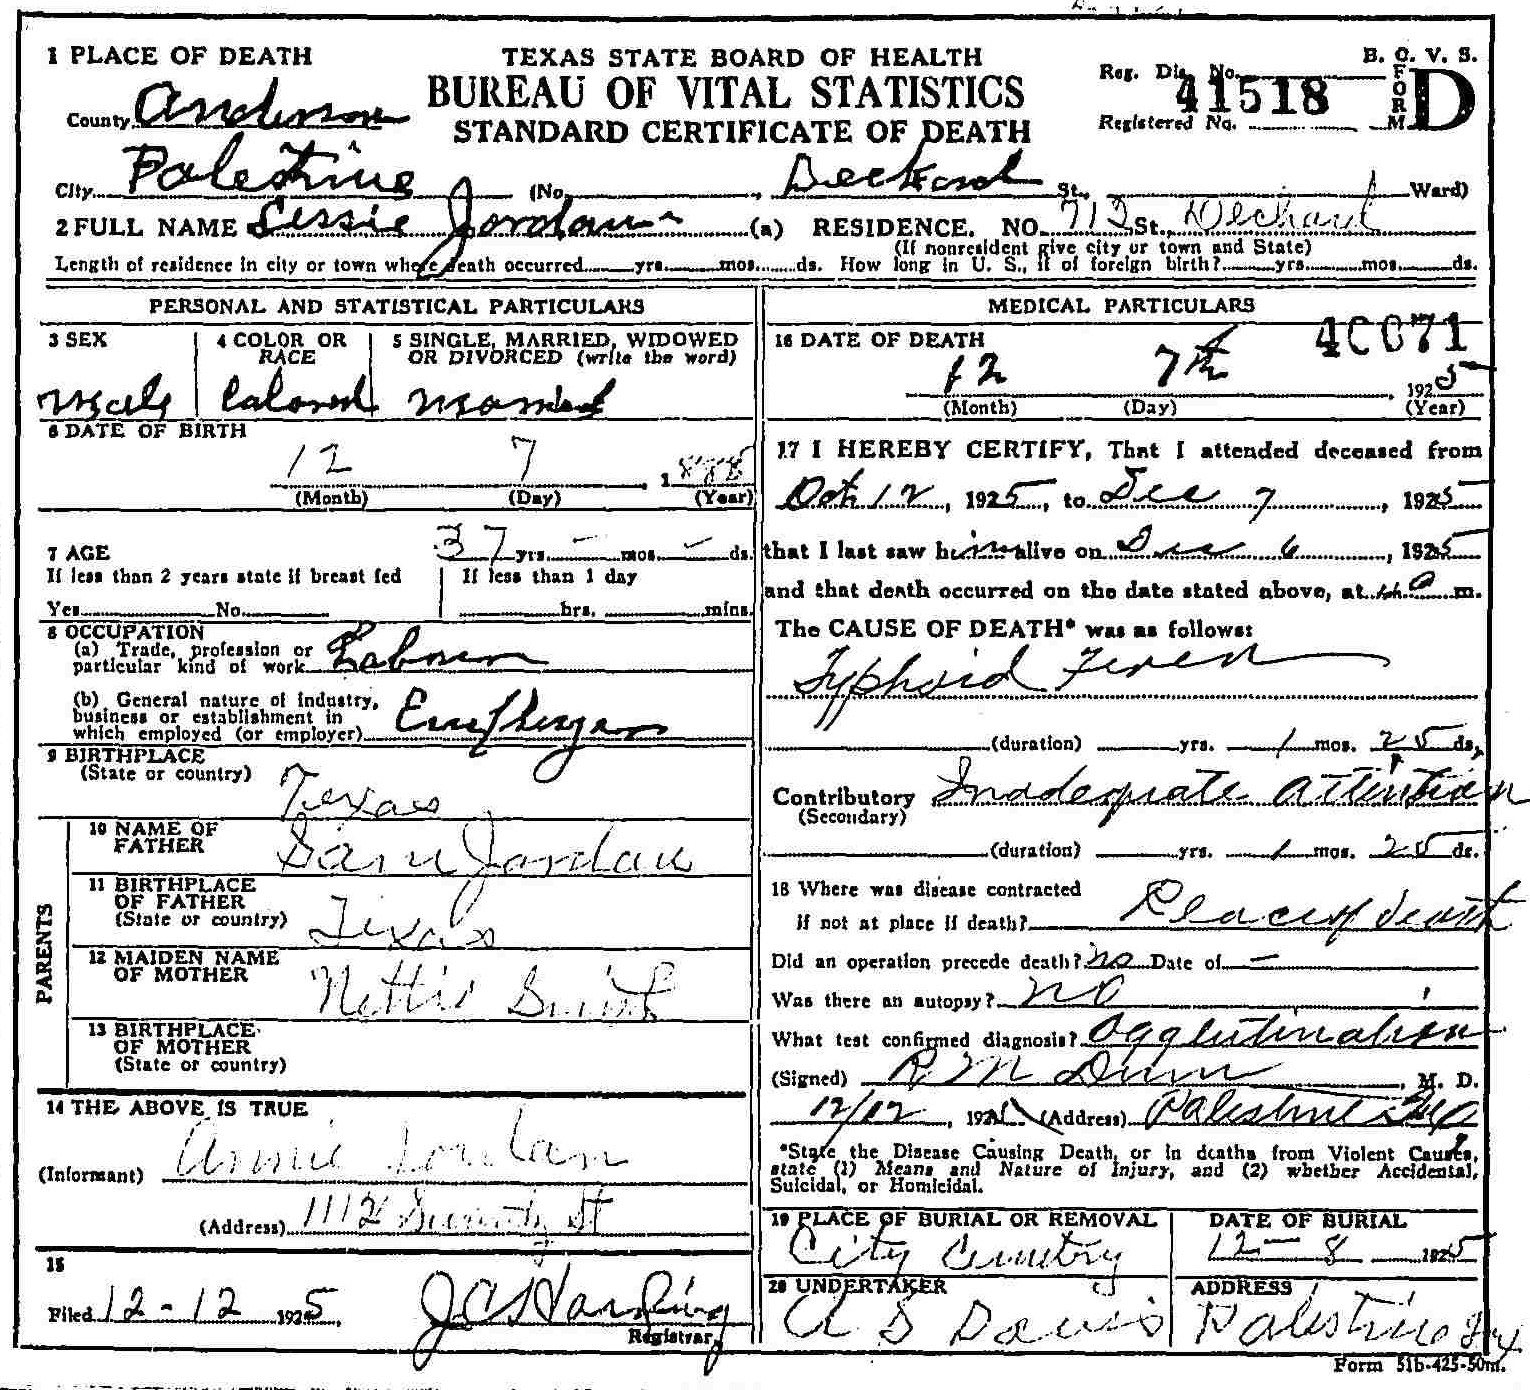 1 PLACE OF DEATH
TEXAS STATE BOARD OF HEALTH
BUREAU OF VITAL STATISTICS
STANDARD CERTIFICATE OF DEATH
B. O. V. S.
FORM D
Reg. Dis. No.
41518
Registered No.
County Anderson
City Palestine (No. , Deckard St., Ward)
2 FULL NAME Lessie Jordan (a) RESIDENCE. NO. 712 St., Dechard
(If nonresident give city or town and State)
Length of residence in city or town where death occurred yrs. mos. ds. How long in U. S., if of foreign birth? yrs. mos. ds.
PERSONAL AND STATISTICAL PARTICULARS
3 SEX
Male
4 COLOR OR RACE
Colored
5 SINGLE, MARRIED, WIDOWED
OR DIVORCED (write the word)
Married
6 DATE OF BIRTH
12 7 , 1888
(Month) (Day) (Year)
7 AGE 37 yrs. - mos. - ds.
If less than 2 years state if breast fed
Yes No
If less than 1 day
hrs. mins.
8 OCCUPATION
(a) Trade, profession or
particular kind of work Laborer
(b) General nature of industry,
business or establishment in
which employed (or employer)
9 BIRTHPLACE
(State or country) Texas
PARENTS
10 NAME OF
FATHER Sam Jordan
11 BIRTHPLACE
OF FATHER
(State or country) Texas
12 MAIDEN NAME
OF MOTHER Nettie Smith
13 BIRTHPLACE
OF MOTHER
(State or country)
14 THE ABOVE IS TRUE
(Informant) Annie Jordan
(Address) 1112 St
15
Filed 12-12 1925, J C Harding
Registrar
MEDICAL PARTICULARS
16 DATE OF DEATH
40071
12 7th , 1925
(Month) (Day) (Year)
17 I HEREBY CERTIFY, That I attended deceased from
Oct 12, 1925, to Dec 7, 1925
that I last saw him alive on Dec 6, 1925
and that death occurred on the date stated above, at a m.
The CAUSE OF DEATH* was as follows:
Typhoid Fever
(duration) yrs. 1 mos. 25 ds,
Contributory Inadequate attention
(Secondary)
(duration) yrs. 1 mos. 25 ds.
18 Where was disease contracted
if not at place if death? Place of death
Did an operation precede death? no Date of -
Was there an autopsy? no
What test confirmed diagnosis? Agglutination
(Signed) R M Dunn, M. D.
12/12, 192 (Address) Palestine Tex
*State the Disease Causing Death, or in deaths from Violent Causes,
state (1) Means and Nature of Injury, and (2) whether Accidental,
Suicidal, or Homicidal.
19 PLACE OF BURIAL OR REMOVAL
City Cemetry
DATE OF BURIAL
12-8 1925
20 UNDERTAKER
A S Davis
ADDRESS
Palestine Tex
Form 51b-425-50m.